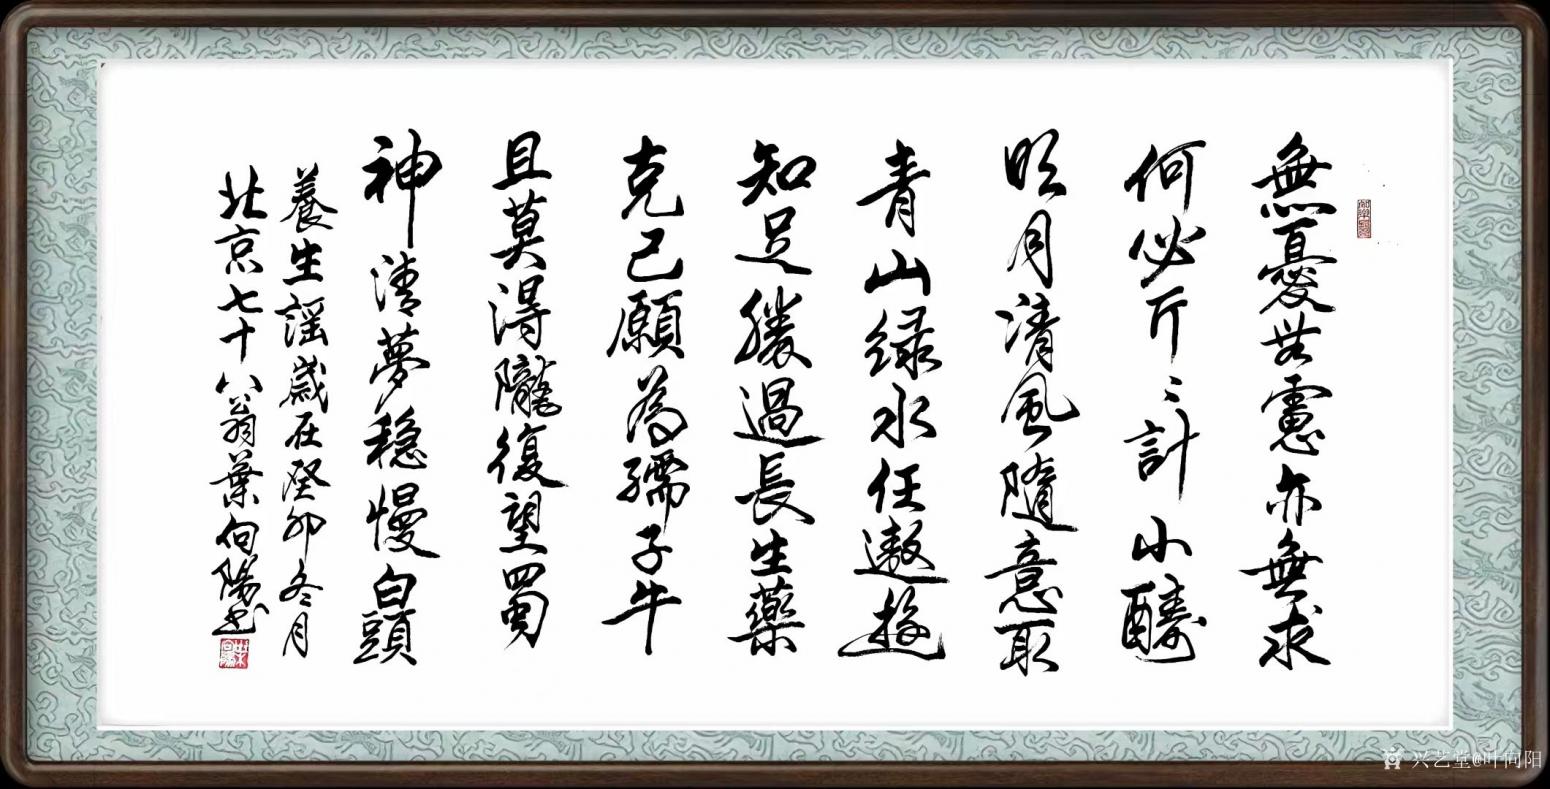 無憂無慮亦無求
何必斤〻計小酬
明月清風隨意取
青山绿水任遨遊
知足勝過長生藥
克己願為孺子牛
且莫得隴復望蜀
神清夢稳慢白頭
養生謡歲在癸卯冬月
北京七十八翁葉向陽书
兴艺堂@叶向阳